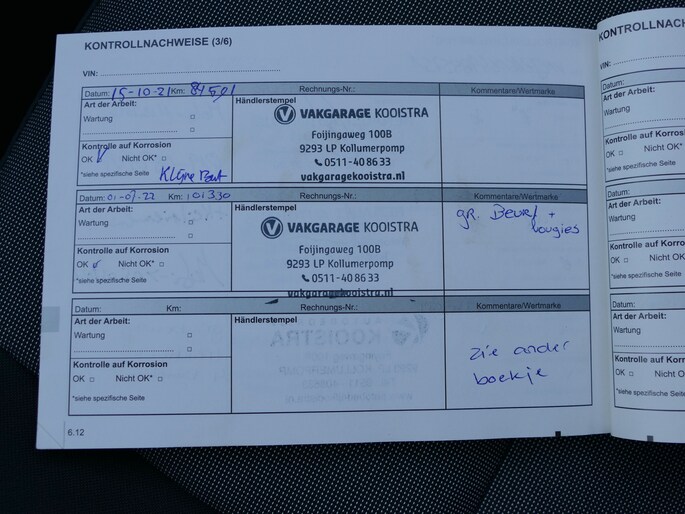 KONTROLLNACHWEISE (3/6)
VIN:
Datum: 15-10-21 Km: 84501 Rechnungs-Nr.: Kommentare/Wertmarke
Art der Arbeit: Händlerstempel
Wartung
VAKGARAGE KOOISTRA
Foijingaweg 100B
9293 LP Kollumerpomp
0511-40 86 33
vakgaragekooistra.nl
Kontrolle auf Korrosion
OK Nicht OK*
*siehe spezifische Seite Kleine Beurt
Datum: 01-07-22 Km: 101330 Rechnungs-Nr.: Kommentare/Wertmarke
Art der Arbeit: Händlerstempel
Wartung
VAKGARAGE KOOISTRA
Foijingaweg 100B
9293 LP Kollumerpomp
0511-40 86 33
vakgaragekooistra.nl
gr. Beurt +
bougies
Kontrolle auf Korrosion
OK Nicht OK*
*siehe spezifische Seite
Datum: Km: Rechnungs-Nr.: Kommentare/Wertmarke
Art der Arbeit: Händlerstempel
Wartung
zie ander
boekje
Kontrolle auf Korrosion
OK Nicht OK*
*siehe spezifische Seite
6.12
KONTROLLN
VIN:
Datum:
Art der Arbeit:
Wartung
Kontrolle auf
OK
*siehe spezifische
Datum:
Art der Arbeit
Wartung
Kontrolle au
OK
*siehe spezifisc
Datum:
Art der Arbe
Wartung
Kontrolle a
OK
*siehe spezif